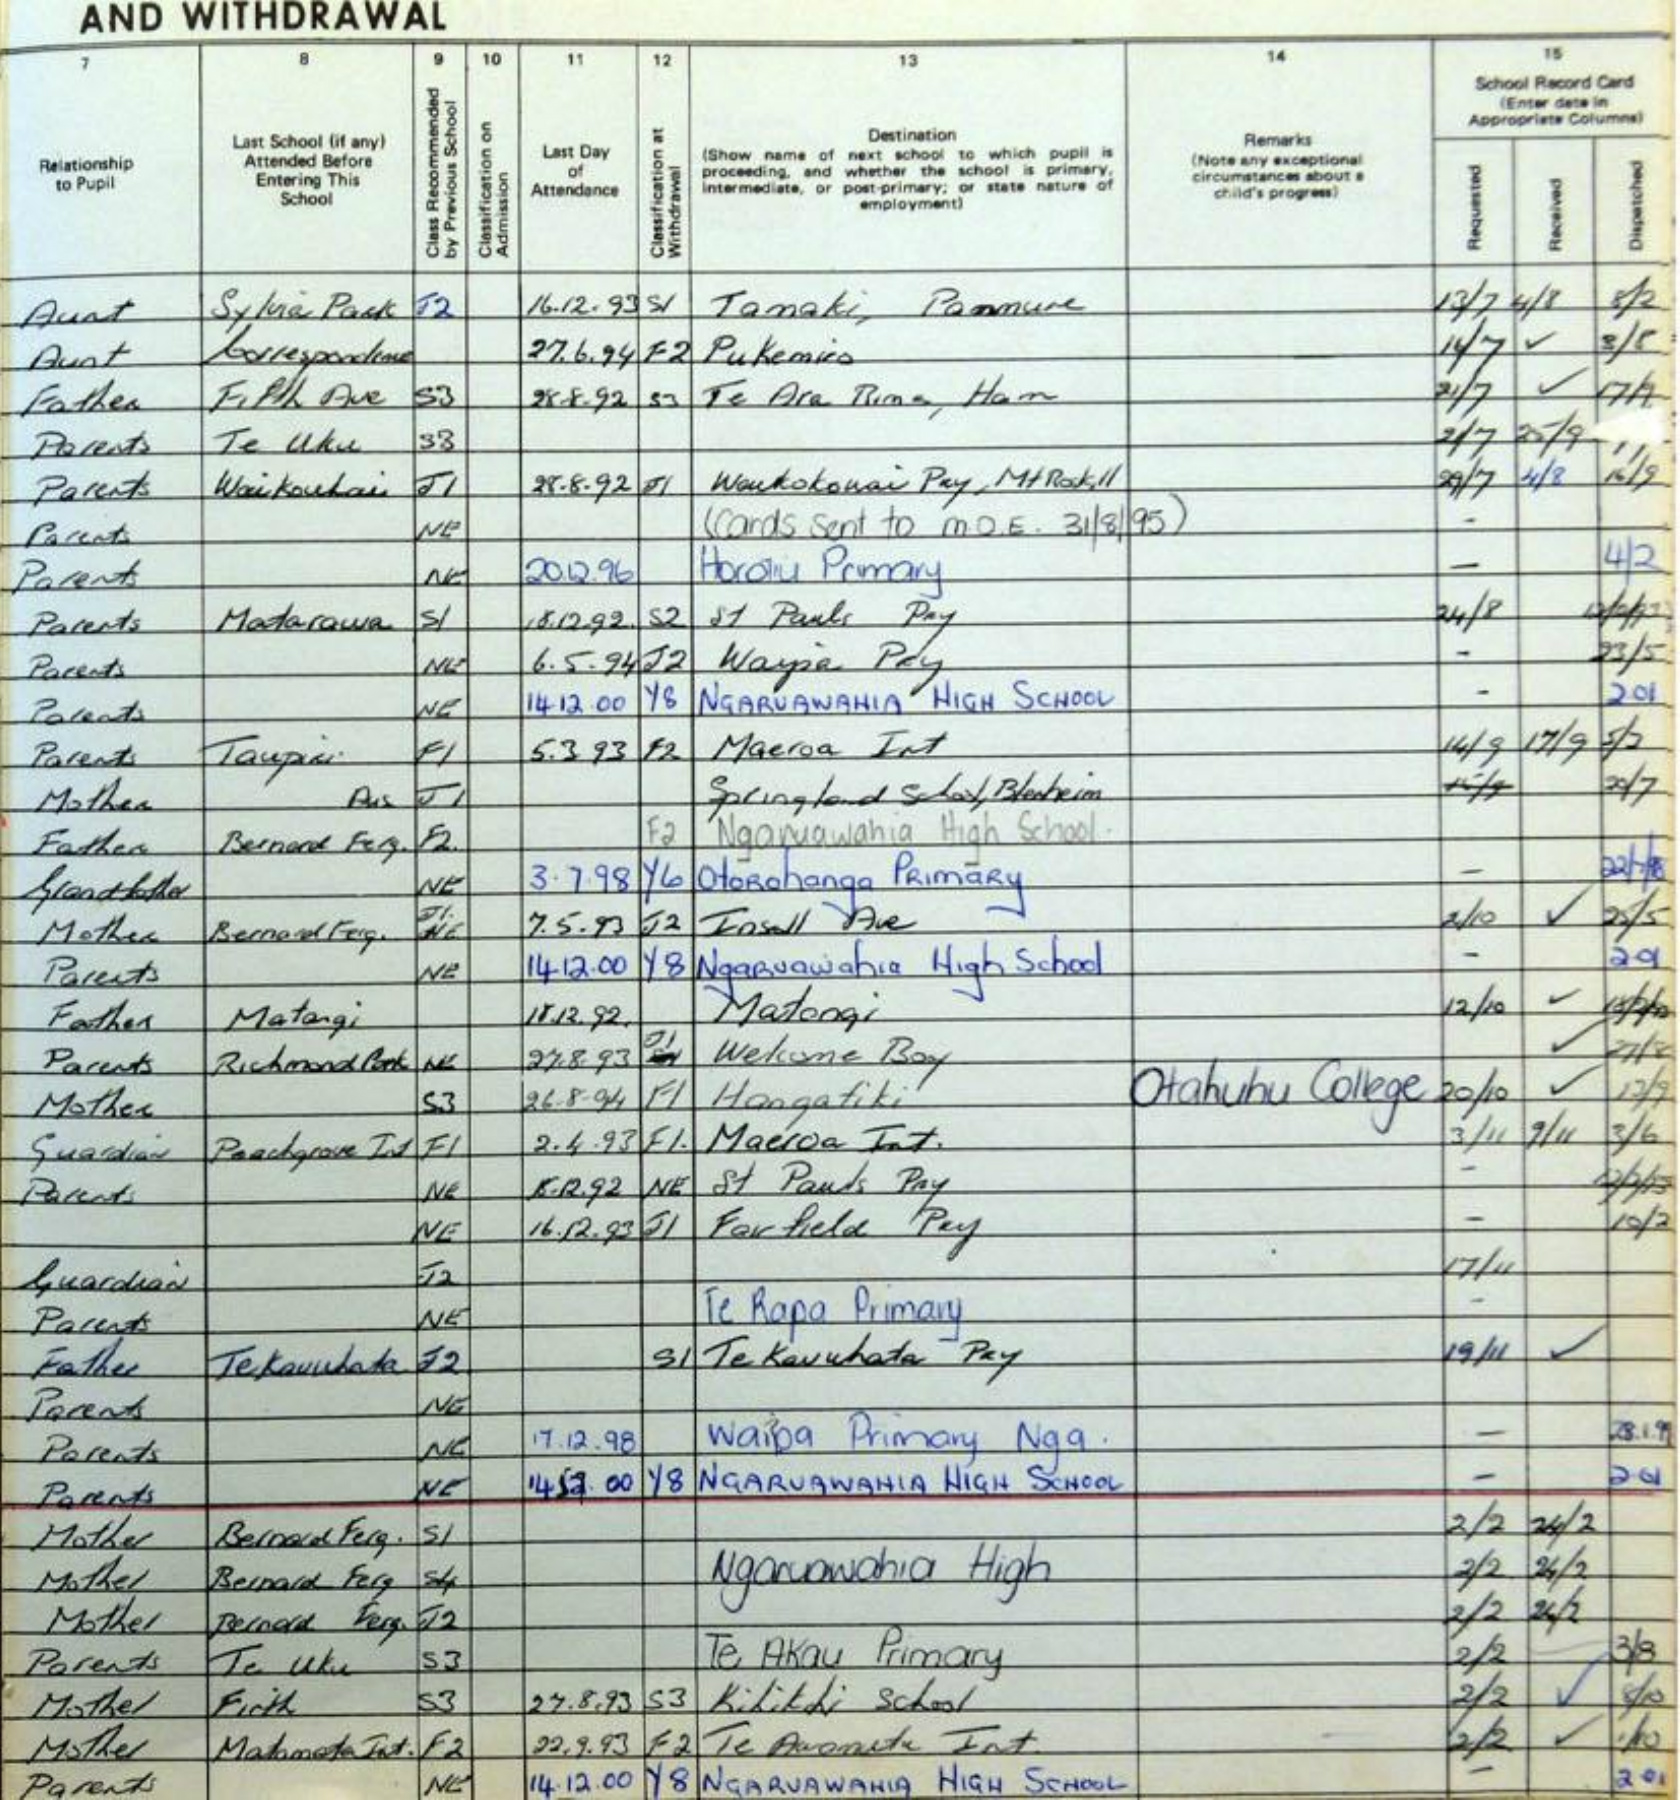 AND WITHDRAWAL
7 8 9 10 11 12 13 14 15
Relationship to Pupil
Last School (if any) Attended Before Entering This School
Class Recommended by Previous School
Classification on Admission
Last Day of Attendance
Classification at Withdrawal
Destination
(Show name of next school to which pupil is proceeding, and whether the school is primary, intermediate, or post-primary; or state nature of employment)
Remarks
(Note any exceptional circumstances about a child's progress)
School Record Card
(Enter date in Appropriate Columns)
Requested Received Dispatched
Aunt Sylvia Park J2 16.12.93 S1 Tamaki, Panmure 13/7 4/8 8/2
Aunt Correspondence 27.6.94 F2 Pukemiro 14/7 ✓
Father Fifth Ave S3 28.8.92 S3 Te Ara Rima, Ham 21/7 ✓
Parents Te Uku S3 2/7 25/9
Parents Waikowhai J1 28.8.92 J1 Pry, Mt Roskill 29/7 4/8 16/9
Parents NE (Cards sent to M.O.E. 31/8/95) -
Parents NE 20.12.96 Horotiu Primary — 4/2
Parents Matarawa S1 18.12.92. S2 St Pauls Pry 24/8
Parents NE 6.5.94 J2 Waipa Pry - 23/5
Parents NE 14.12.00 Y8 NGARUAWAHIA HIGH SCHOOL - 2.01
Parents Taupiri F1 5.3.93 F2 Maeroa Int 14/9 17/9
Mother Aus J1 Springland School, Blenheim 20/7
Father Bernard Ferg. F2. F2 Ngaruawahia High School.
Grandfather NE 3.7.98 Y6 Otorohanga PRIMARY —
Mother Bernard Ferg. J1. NE 7.5.93 J2 Insoll Ave 2/10 ✓ 25/5
Parents NE 14.12.00 Y8 Ngaruawahia High School - 2.01
Father Matangi 18.12.92. Matangi 12/10 ✓
Parents Richmond Park NE 27.8.93 J1 Welcome Bay ✓
Mother S3 26.8.94 F1 Hangatiki Otahuhu College 20/10 ✓ 12/9
Guardian Peachgrove Int F1 2.4.93 F1. Maeroa Int. 3/11 9/11 3/6
Parents NE 18.12.92 NE St Pauls Pry -
NE 16.12.93 J1 Fairfield Pry - 10/2
Guardian J2 17/11
Parents NE Te Rapa Primary -
Father Te Kauwhata J2 S1 Te Kauwhata Pry 19/11 ✓
Parents NE
Parents NE 17.12.98 Waipa Primary Nga. — 28.1.99
Parents NE 14.12.00 Y8 NGARUAWAHIA HIGH SCHOOL - 2.01
Mother Bernard Ferg. S1 2/2 24/2
Mother Bernard Ferg S4 Ngaruawahia High 2/2 24/2
Mother Bernard Ferg. J2 2/2 24/2
Parents Te Uku S3 Te Akau Primary 2/2 3/8
Mother Firth S3 27.8.93 S3 Kihikihi School 2/2 ✓ 8/10
Mother Matamata Int. F2 22.9.93 F2 Te Int. 2/2 ✓ 1/10
Parents NE 14.12.00 Y8 NGARUAWAHIA HIGH SCHOOL - 2.01